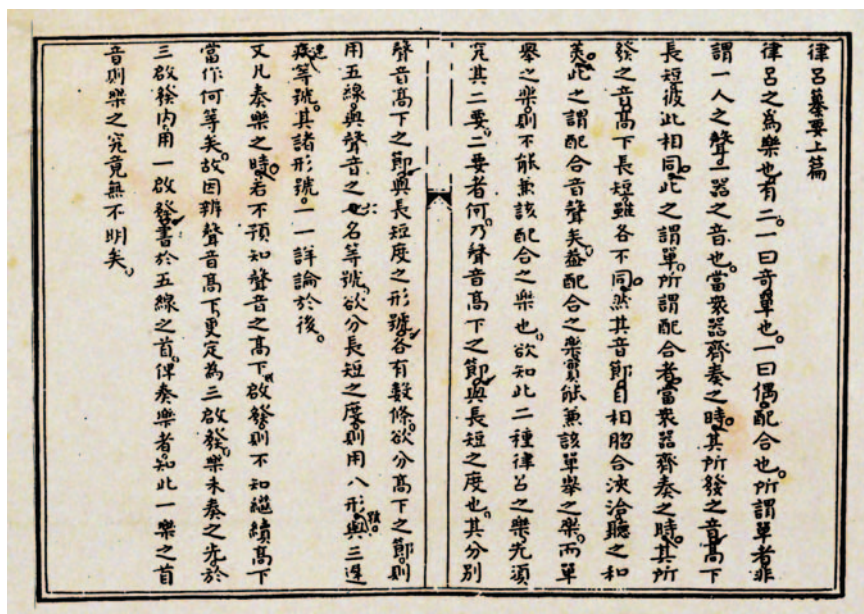 律呂纂要上篇
律呂之為樂也有二。一曰奇單也。一曰偶配合也。所謂單者非
謂一人之聲一器之音也。當衆器齊奏之時。其所發之音高下
長短彼此相同。此之謂單。所謂配合者當衆器齊奏之時。其所
發之音高下長短。雖各不同。然其音節自相脗合浹洽聽之和
美。此之謂配合音聲矣。蓋配合之樂實能兼該單舉之樂。而單
舉之樂。則不能兼該配合之樂也。欲知此二種律呂之樂先須
究其二要。二要者何。乃聲音高下之節。與長短之度也。其分別
聲音高下之節與長短度之形號。各有數條。欲分高下之節。則
用五線。與聲音之七名等號。欲分長短之度。則用八形號。與三遲
速等號。其諸形號。一一詳論於後。
又凡奏樂之時。若不預知聲音之高下啟發。則不知繼續高下
當作何等矣。故因辨聲音高下。更定為三啟發。樂未奏之先。於
三啟發內。用一啟發。書於五線之首。俾奏樂者。知此一樂之首
音則樂之究竟無不明矣。